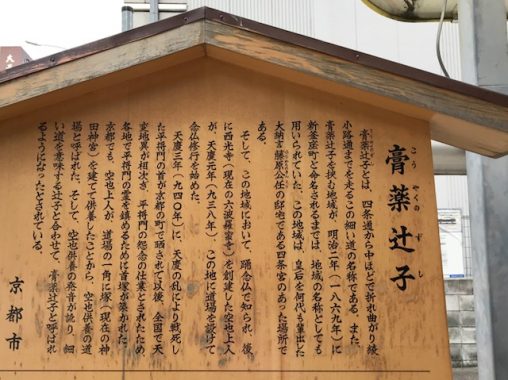 膏薬辻子
こうやくのずし
膏薬辻子とは、四条通から中ほどで折れ曲がり綾
小路通までを走るこの細い道の名称である。また、
膏薬辻子を挟む地域が、明治二年(一八六九年)に
新釜座町と命名されるまでは、地域の名称としても
用いられていた。この地域は、皇后を何代も輩出した
大納言藤原公任の邸宅である四条宮のあった場所で
ある。
そして、この地域において、踊念仏で知られ、後
に西光寺(現在の六波羅蜜寺)を創建した空也上人
が、天慶元年(九三八年)、この地に道場を設けて
念仏修行を始めた。
天慶三年(九四〇年)に、天慶の乱により戦死し
た平将門の首が京都の町で晒されて以後、全国で天
変地異が相次ぎ、平将門の怨念の仕業とされたため
各地で平将門の霊を鎮めるために首塚が築かれた。
京都でも、空也上人が、道場の一角に塚(現在の神
田神宮)を建てて供養したことから、空也供養の道
場と呼ばれた。そして、空也供養の発音が訛り、細
い道を意味する辻子と合わせて、膏薬辻子と呼ばれ
るようになったとされている。
京都市